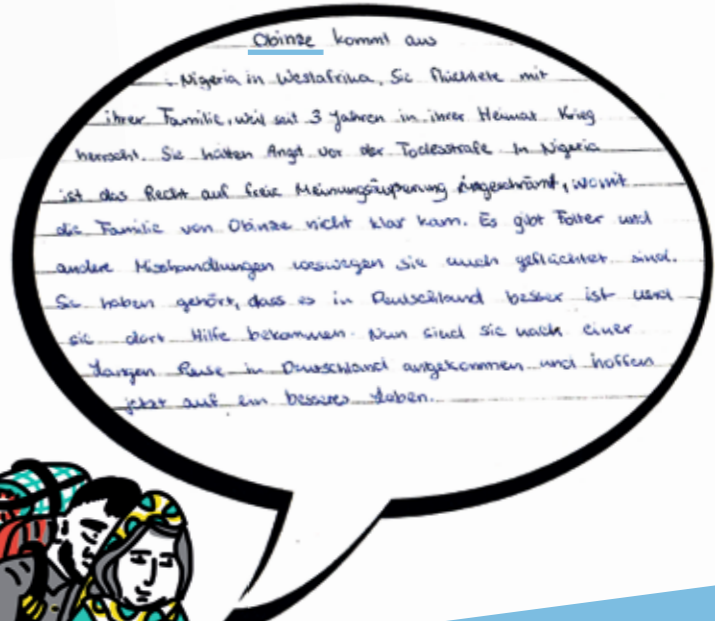 Obinze kommt aus
Nigeria in Westafrika. Sie flüchtete mit
ihrer Familie, weil seit 3 Jahren in ihrer Heimat Krieg
herrscht. Sie hatten Angst vor der Todesstrafe In Nigeria
ist das Recht auf freie Meinungsäußerung eingeschränkt, womit
die Familie von Obinze nicht klar kam. Es gibt Folter und
andere Misshandlungen weswegen sie auch geflüchtet sind.
Sie haben gehört, dass es in Deutschland besser ist und
sie dort Hilfe bekommen. Nun sind sie nach einer
langen Reise in Deutschland angekommen und hoffen
jetzt auf ein besseres Leben.